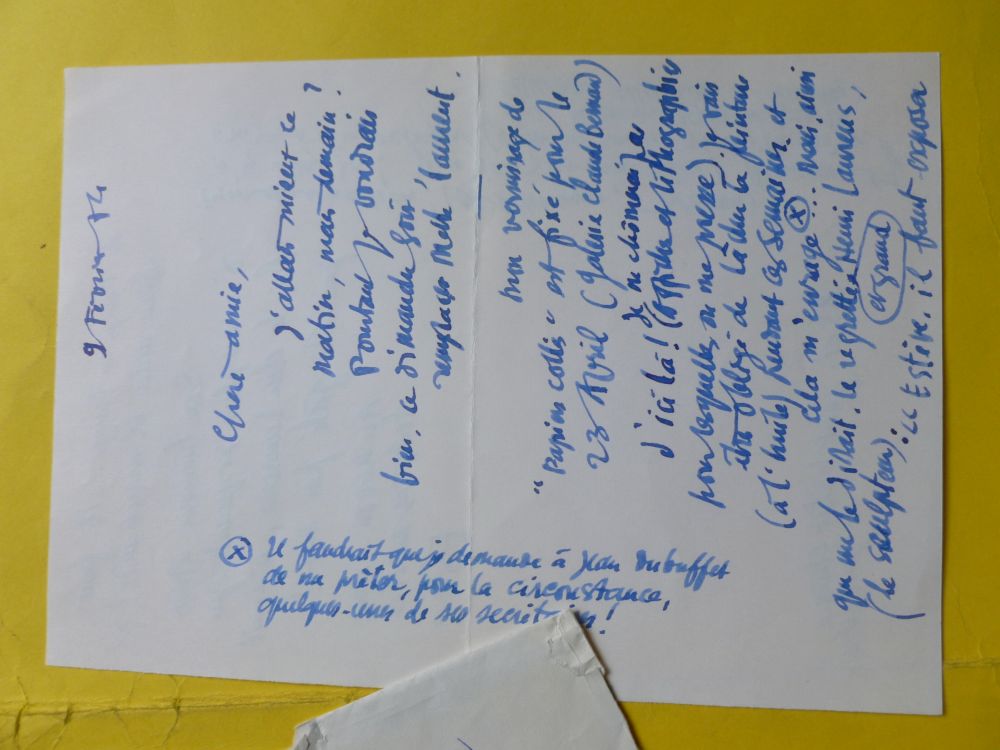 9 Février 74
Chère amie,
J'allais mieux ce
matin, mais demain?
Pourtant je voudrais
bien, ce dimanche soir
remplacer Melle Laurent.
Mon vernissage de
"Papiers collés" est fixé pour le
23 Avril (Galerie Claude Bernard)
D'ici là! je ne chômerai pas
et lithographie
pour lesquelles on me presse) Je vais
être obligé de lâcher la peinture
(à l'huile) pendant ces semaines et
cela m'enrage ⓧ... mais, ainsi
que me le disait, le regretté et grand Henri Laurens,
(le sculpteur): "Estève, il faut exposer
ⓧ Il faudrait que je demande à Jean Dubuffet
de me prêter, pour la circonstance,
quelques-unes de ses secrétaires!